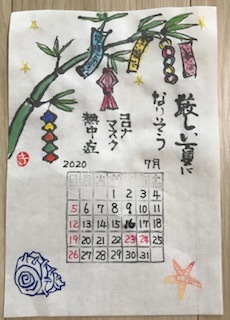 厳しい夏に
なりそう
コロナ
マスク
熱中症
2020 7月
日 月 火 水 木 金 土
1 2 3 4
5 6 7 8 9 10 11
12 13 14 15 16 17 18
19 20 21 22 23 24 25
26 27 28 29 30 31